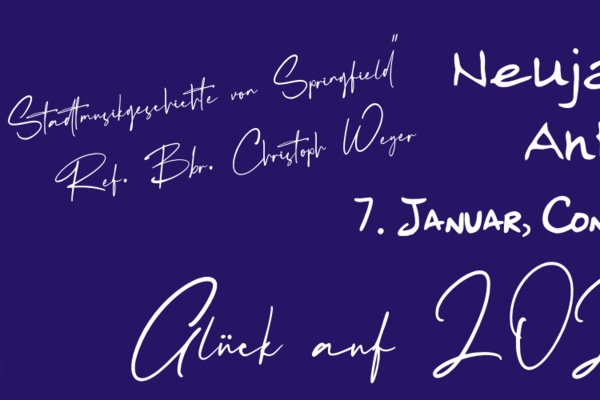 Stadtmusikgeschichte von Springfield"
Ref. Bbr. Christoph Weyer
Neuja
An
7. Januar, Con
Glück auf 202